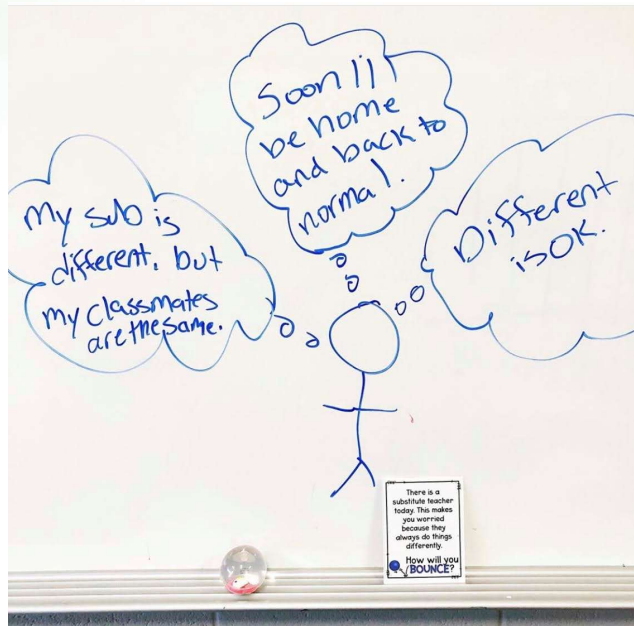 My sub is
different, but
my classmates
are the same.
Soon I'll
be home
and back to
normal.
Different
is OK.
There is a
substitute teacher
today. This makes
you worried
because they
always do things
differently.
How will you
BOUNCE?